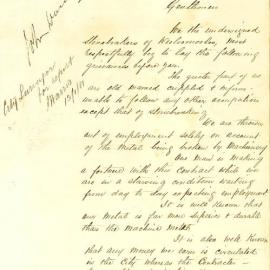 Gentlemen
We the undersigned
Stonebreakers of Woolloomooloo, most
respectfully beg to lay the following
grievances before you.
The greater part of us
are old married crippled & infirm
unable to follow any other occupation
except that of stonebreaking.
We are thrown
out of employment solely on account
of the Metal being broken by Machinery
One man is making
a fortune with this contract while we
are in a starving condition waiting
from day to day expecting employment
It is well Known that
our Metal is far more superior & durable
than the machine Metal.
It is also well Known
that any money we earn is circulated
in the City whereas the Contractor
City Surveyor
for report